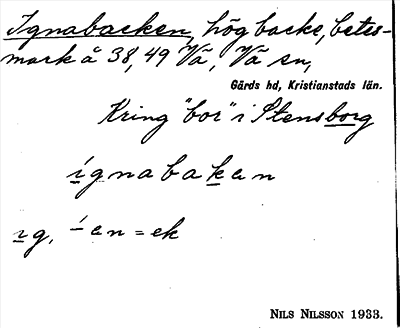 Ignabacken, hög backe, betes-
mark å 38, 49 Vä, Vä sn,
Gärds hd, Kristianstads län.
Kring "bor" i Stensborg
ígnabakan
ıg, ´-an = ek
NILS NILSSON 1933.